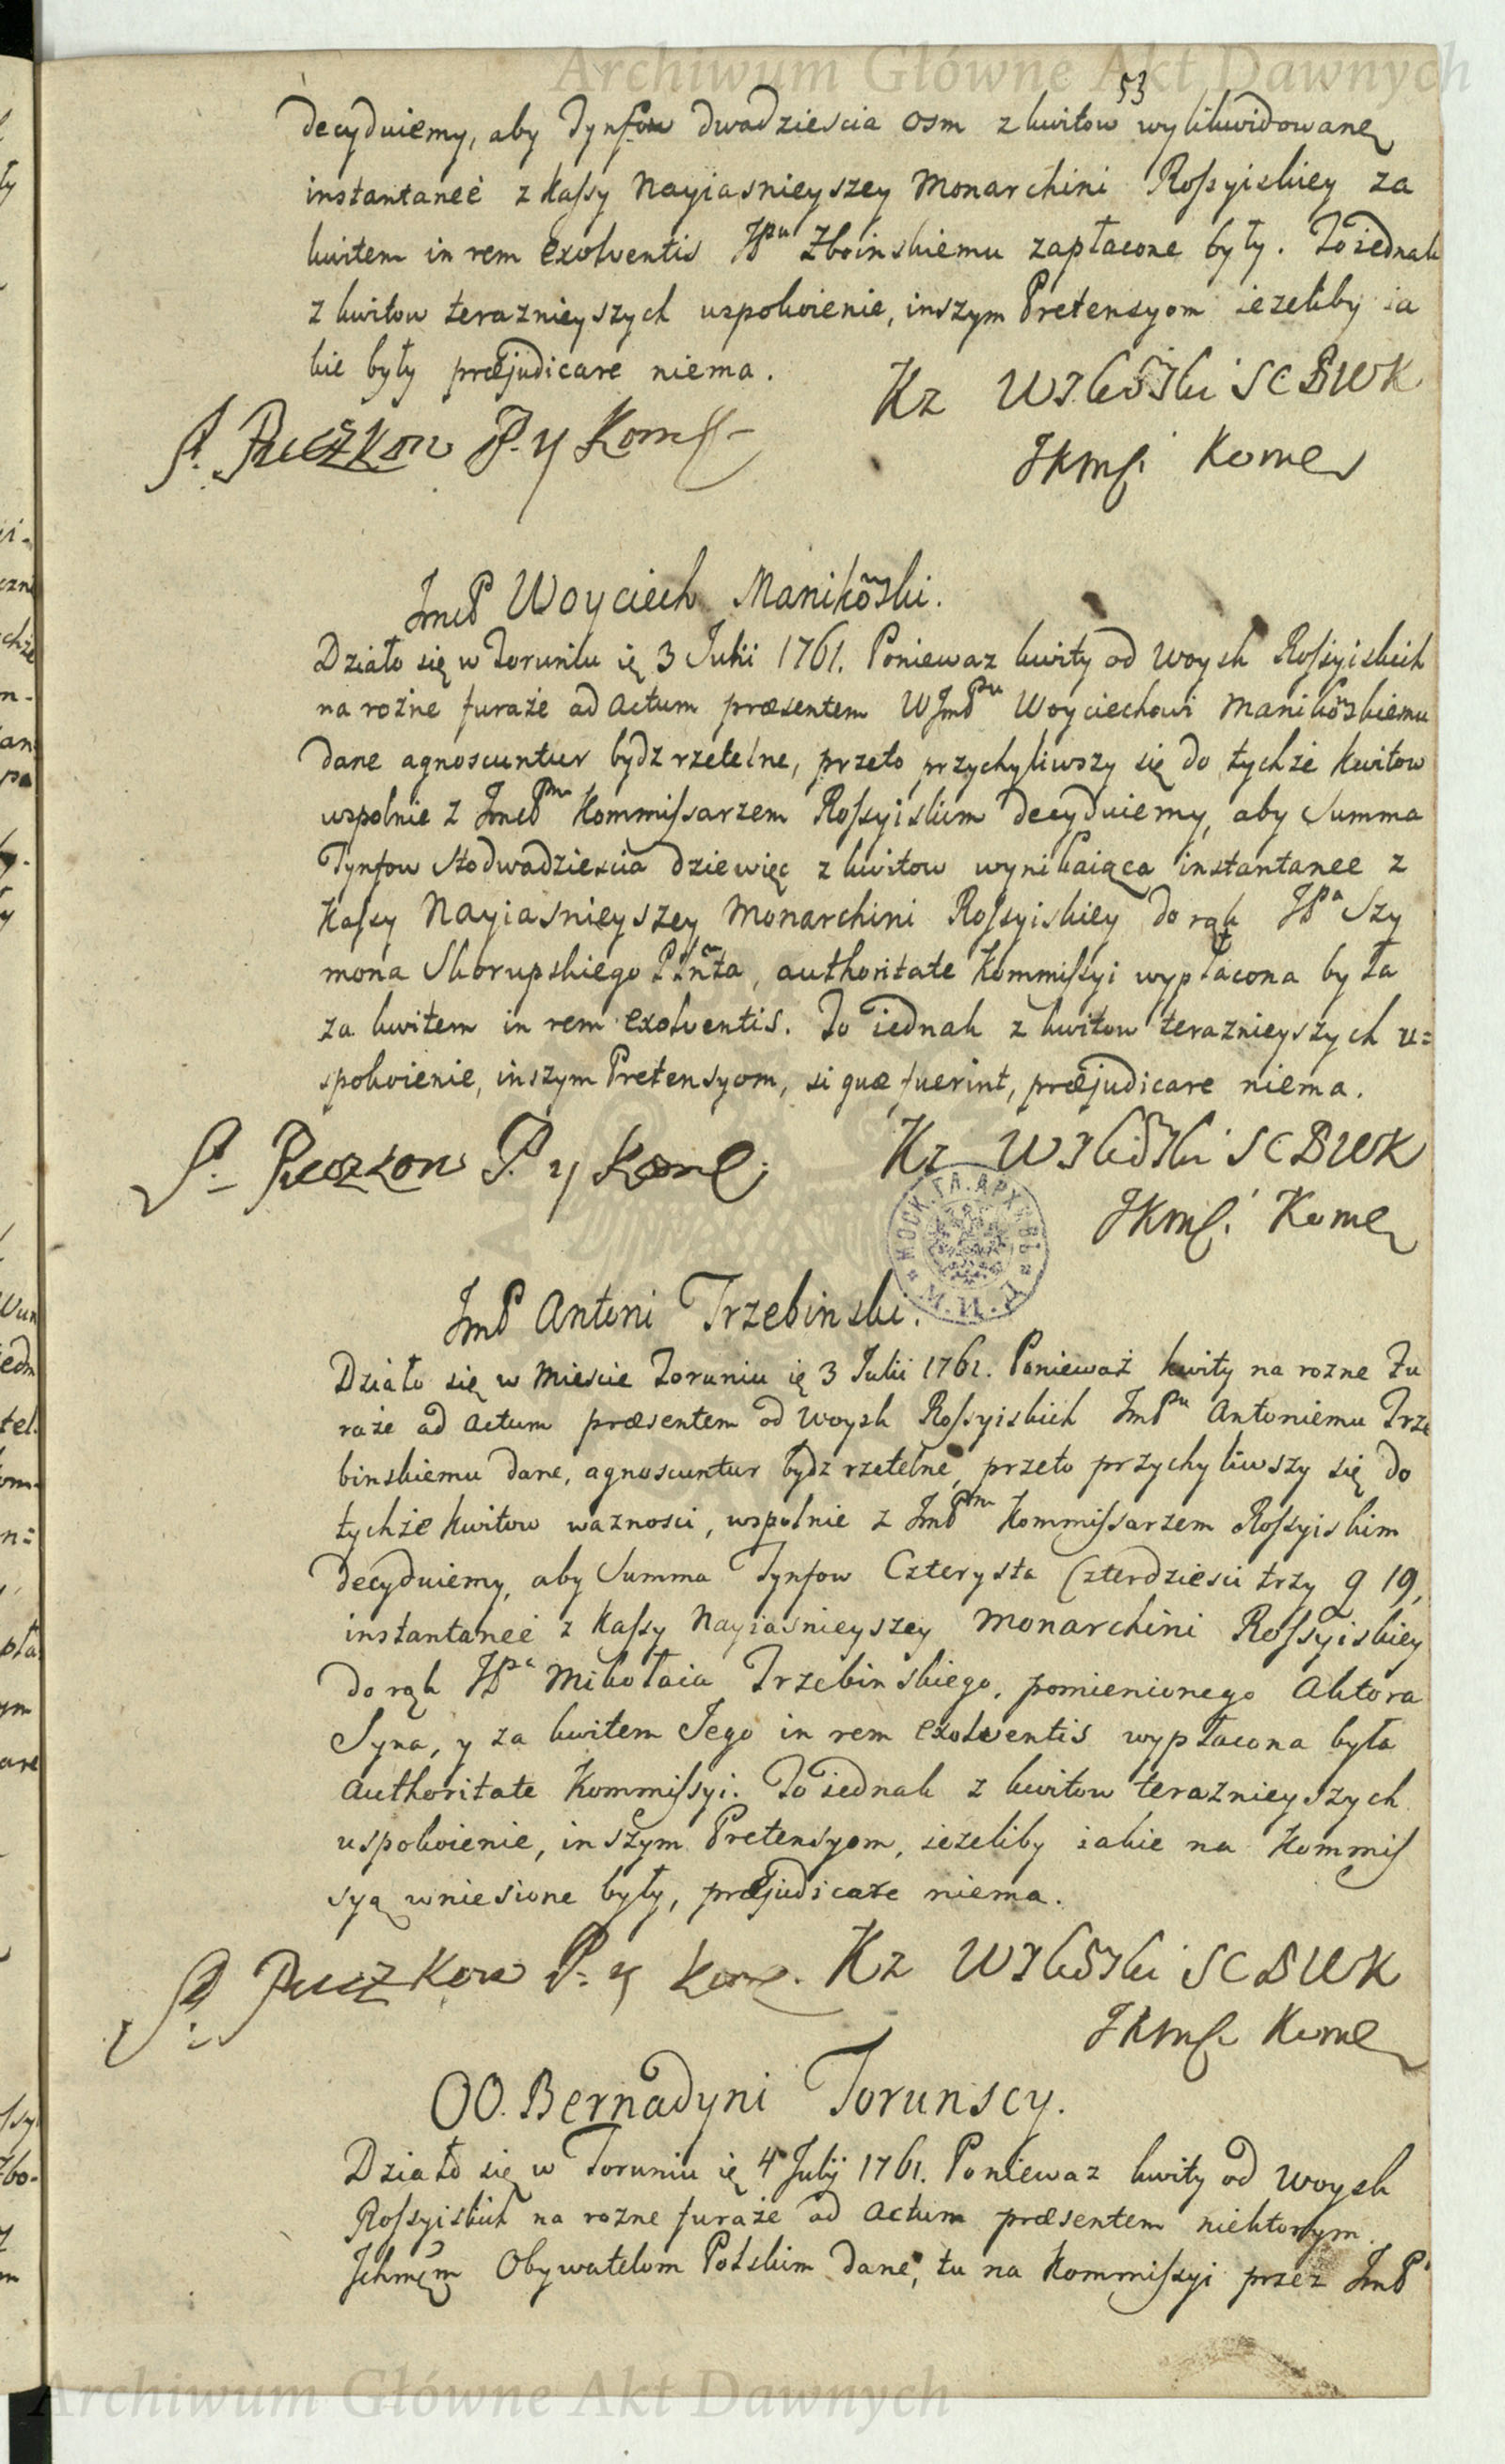 Archiwum Główne Akt Dawnych
53
decyduiemy, aby Tynfow dwadziescia osm z kwitow wylikwidowane
instantaneè z Kassy Nayiasnieyszey Monarchini Rossyiskiey za
kwitem in rem exolventis JP<sup>nu</sup> Zboinskiemu zapłacone były. To iednak
z kwitow teraznieyszych uspokoienie, inszym Pretensyom iezeliby ia
kie były præjudicare niema.
Kz Wskoski SCBWK
P. Puczkow P. y Kom
JKMsi Kome
JmcP Woyciech Manikoski.
Działo się w Toruniu ię 3 Julii 1761. Poniewaz kwity od Woysk Rossyiskich
na rożne furaże ad Actum præsentem WJmP<sup>nu</sup> Woyciechowi Manikoskiemu
dane agnoscuntur bydz rzetelne, przeto przychyliwszy się do tychże Kwitow
wspolnie z JmcP<sup>nm</sup> Kommissarzem Rossyiskim decyduiemy, aby Summa
Tynfow Stodwadziescia dziewięc z kwitow wynikaiąca instantanee z
Kassy Nayiasnieyszey Monarchini Rossyiskiey do rąk JP<sup>a</sup> Szy
mona Skorupskiego Plnta, authoritate Kommissyi wypłacona była
za kwitem in rem exolventis. To iednak z kwitow teraznieyszych u=
spokoienie, inszym Pretensyom, si quæ fuerint, præjudicare niema.
P. Puczkow P. y Kome
Kz Wskoski SCBWK
JKMsi Kome
JmP Antoni Trzebinski.
Działo się w Miescie Toruniu ię 3 Julii 1761. Ponieważ kwity na rozne fu
raże ad Actum præsentem od Woysk Rossyiskich JmP<sup>nu</sup> Antoniemu Trze
binskiemu dane, agnoscuntur bydz rzetelne, przeto przychyliwszy się do
tychże Kwitow waznosci, wspolnie z JmP<sup>nm</sup> Kommissarzem Rossyiskim
decyduiemy, aby Summa Tynfow Czterysta Czterdziesci trzy g 19,
instantaneè z Kassy Nayiasnieyszey Monarchini Rossyiskiey
do rąk JP<sup>a</sup> Mikołaia Trzebinskiego, pomienionego Aktora
Syna, y za kwitem Jego in rem exolventis wypłacona była
Authoritate Kommissyi. To iednak z kwitow teraznieyszych
uspokoienie, inszym Pretensyom, iezeliby iakie na Kommis
syą wniesione były, præjudicare niema.
P. Puczkow P. y Kom. Kz Wskoski SCBWK
JKMsi Kome
OO. Bernadyni Torunscy.
Działo się w Toruniu ię 4 Julij 1761. Poniewaz kwity od Woysk
Rossyiskich na rozne furaże ad Actum præsentem niektorym
Jchmcm Obywatelom Polskim dane, tu na Kommissyi przez JmP
Archiwum Główne Akt Dawnych